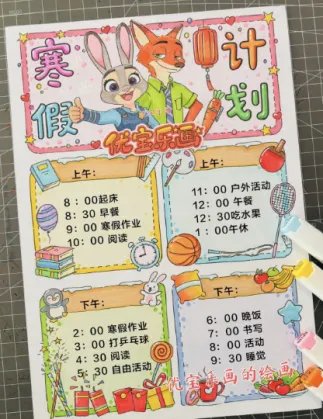 寒假计划
优宝乐画
上午：
8：00起床
8：30 早餐
9：00 寒假作业
10：00 阅读
上午：
11：00 户外活动
12：00 午餐
12：30吃水果
1：00午休
下午：
2：00 寒假作业
3：00 打乒乓球
4：30 阅读
5：30 自由活动
下午：
6：00 晚饭
7：00 书写
8：00 活动
9：30 睡觉
优宝乐画的绘画